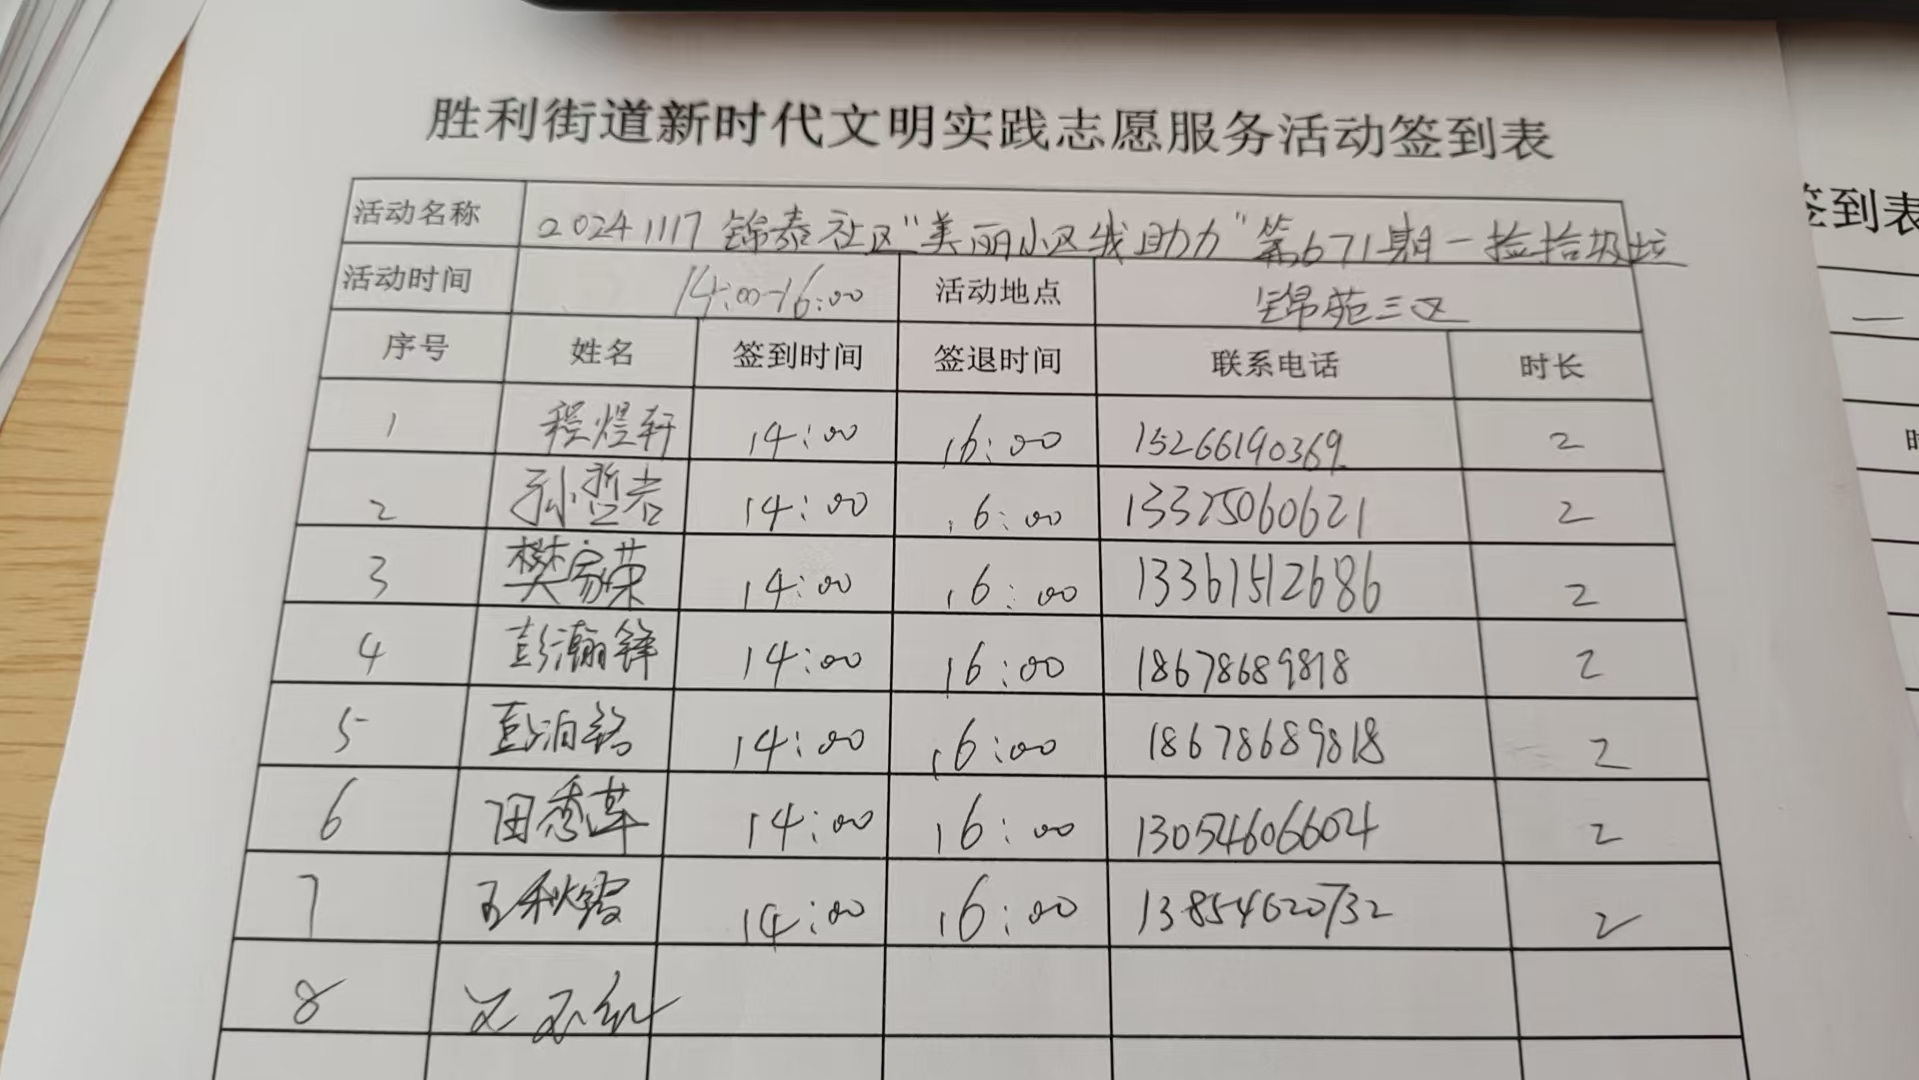 胜利街道新时代文明实践志愿服务活动签到表
活动名称 20241117锦泰社区"美丽小区我助力"第671期-捡拾垃圾
活动时间 14:00-16:00 活动地点 锦苑三区
序号 姓名 签到时间 签退时间 联系电话 时长
1 程煜轩 14:00 16:00 15266190369 2
2 孙哲岩 14:00 16:00 13325060621 2
3 樊家荣 14:00 16:00 13361512686 2
4 彭瀚锋 14:00 16:00 18678689818 2
5 彭泊铭 14:00 16:00 18678689818 2
6 田秀莲 14:00 16:00 13054606604 2
7 王秋霞 14:00 16:00 13854620732 2
8
签到表